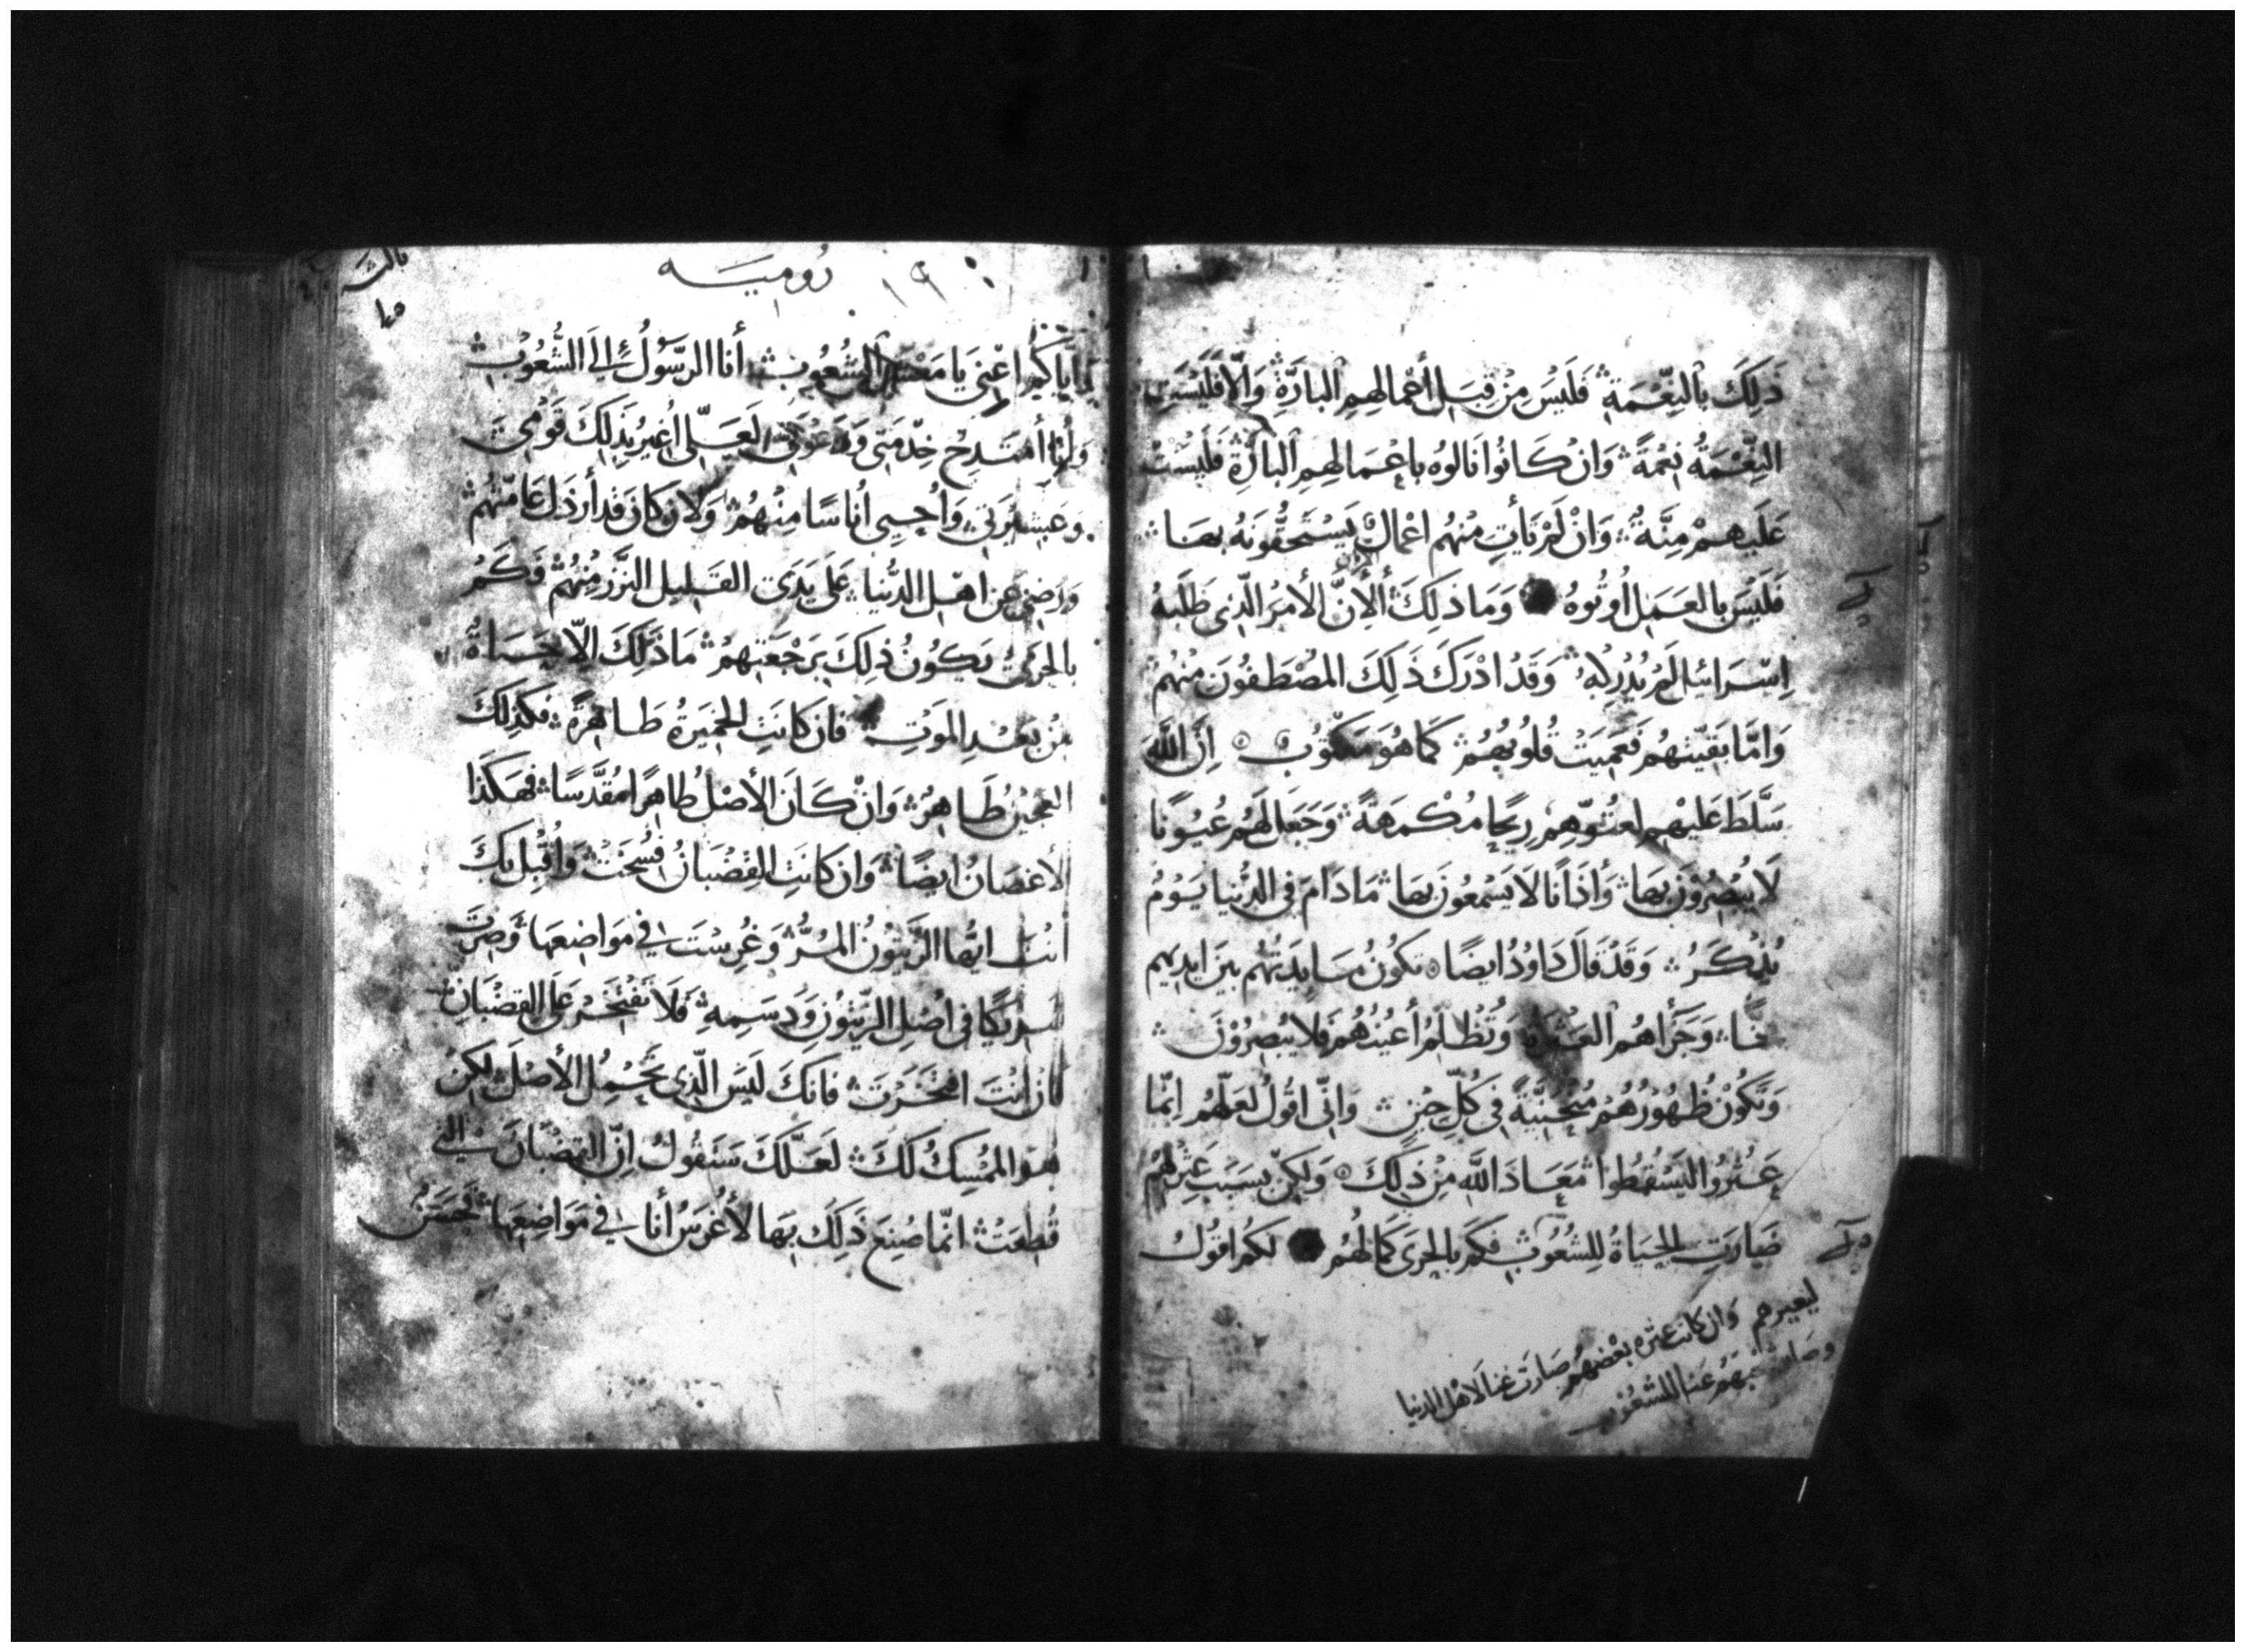 ذَلِكَ بالنِّعْمَةِ فَلَيْسَ مِنْ قِبَلِ أعْمالِهِمِ البارَّةِ وَإلّا فَلَيْسَتِ
النِّعْمَةُ نِعْمَةً وَانْ كَانُوا نَالوُه باعْمَالِهِمِ البارَّةِ فَلَيْسَتْ
عَلَيهِمْ مِنَّةٌ وَانْ لَمْ تَأتِ مِنْهُم اعْمالٌ يَسْتَحِقُّونَهُ بهَا
فَلَيْسَ بالعَمَلِ أُوتُوهُ وَمَا ذلِكَ ألاِنَّ الأمرَ الّذِى طَلَبهُ
اِسْرَائيل لَمْ يُدْرِكْهُ وَقَدْ ادْرَكَ ذَلِكَ المُصْطَفُونَ مِنْهُمْ
وَامَّا بَقيّتهُم فَعَمِيَتْ قُلُوبُهُمْ كَمَا هُوَ مَكْتُوبٌ اِنَّ اللَّهَ
سَلَّطَ عَلَيْهِم لعتُوّهِم رِيحًا مُكْمَهَةً وَجَعَلَ لَهُم عُيُونًا
لَا يُبْصِرُوْنَ بهَا وَأذَانًا لَا يَسْمَعُونَ بهَا مَا دَامَ فى الدُّنيا يَوْمٌ
يُذْكَرُ وَقَدْ قَالَ دَاوُدُ ايضًا تكُونُ مَايِدَتُهُم بَيْنَ ايدِيهِم
فخًّا وَجَزَاهُم وَتُظْلِمُ أعْيُنُهُمْ فَلا يُبْصِرُوْنَ
وَتَكُوْنُ ظُهُوْرُهُمْ مُنْحَنِيَّةً فى كُلِّ حِيْنٍ وَانّى اقُولُ لعَلَّهُم اِنّما
عَثَرُوا ليَسْقُطُوا مَعَاذَ اللَّهِ مِنْ ذَلِكَ وَلكِنْ بِسَبَبِ عَثْرَتِهِمْ
صَارَتِ الحَيَاةُ لِلشُعُوبِ فكَم بالحرَى كَمَالُهُمْ لكم اقولُ
ليعيرهم وَان كانت عثرة بعْضهُم صَارَت غنا لاهْل الدنيا
رُومِيَه ١٩
اِيَّاكُم اعْنِى يَا مَعْشَرَ الشُعُوبِ أنا الرَّسُولُ إلىَ الشُّعُوبِ
أمتَدِحُ خِدْمَتِى لَعَلّى اُغيرُ بذلِكَ قَوْمِى
وَعَشِيرَتِى وَاُحيِى اُناسًا مِنْهُمْ وَلان كانَ قد أرذَلَ عَامَّتُهُمْ
وَرَضِى عَن اهْلِ الدُّنيا عَلى يَدَىِ القَلِيلِ النَّزْرِ مِنْهُمْ فَكَمْ
بالحرَى يَكُونُ ذلِكَ بَرجْعَتِهِمْ مَا ذَلِكَ الّا حَيَاةٌ
مِنْ بَعْدِ المَوْتِ فان كانَتِ الخَمِيَرةُ طَاهِرَةً فكذلِكَ
العَجِيْنُ طَاهِرٌ وَانْ كَانَ الأصْلُ طَاهِرًا مُقَدَّسًا فهَكَذَا
الأغصَانُ ايضًا وَان كانَتِ القِضْبَانُ فُسِخَتْ وَاُقْبِلَ بكَ
انْتَ ايُّها الزَّيْتُونُ المُرُّ وَغُرِسْتَ فى مَوَاضِعِهَا وَصِرْتَ
شَرِيكًا فى اصْلِ الزَّيْتُونِ وَدَسَمِهِ فَلَا تَفْتَخِرْ عَلى القِضْبَانِ
فانْ انْتَ افْتَخَرْتَ فانكَ لَيسَ الّذِى تَحْمِلُ الأصْلَ لكِنْ
هُوَ المُمْسِكُ لَكَ لَعَلَّكَ سَتَقُولُ اِنّ القِضْبَانَ الّتى
قُطِعَتْ انّما صُنِعَ ذَلِكَ بِهَا لأُغْرَسَ أنَا فى مَوَاضِعِهَا فحَسَنٌ